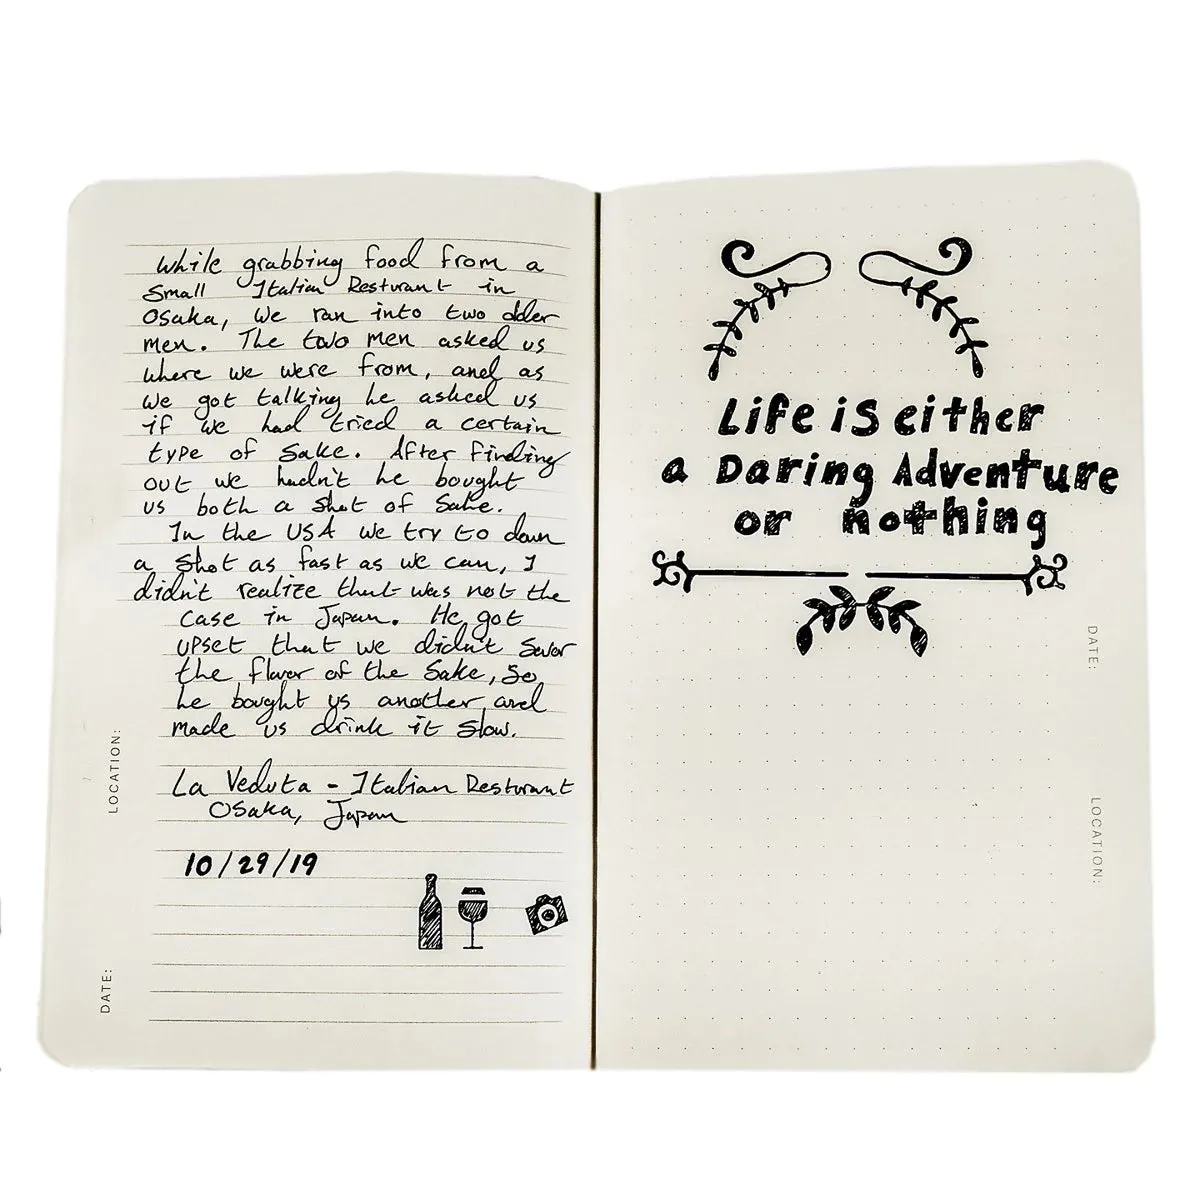 While grabbing food from a
small Italian Resturant in
Osaka, we ran into two older
men. The two men asked us
where we were from, and as
we got talking he asked us
if we had tried a certain
type of Sake. After finding
out we hadn't he bought
us both a shot of Sake.
In the USA we try to down
a shot as fast as we can, I
didn't realize that was not the
case in Japan. He got
upset that we didn't savor
the flavor of the Sake, so
he bought us another and
made us drink it slow.
La Veduta - Italian Resturant
Osaka, Japan
10/29/19
LOCATION:
DATE:
Life is either
a Daring Adventure
or nothing
DATE:
LOCATION: